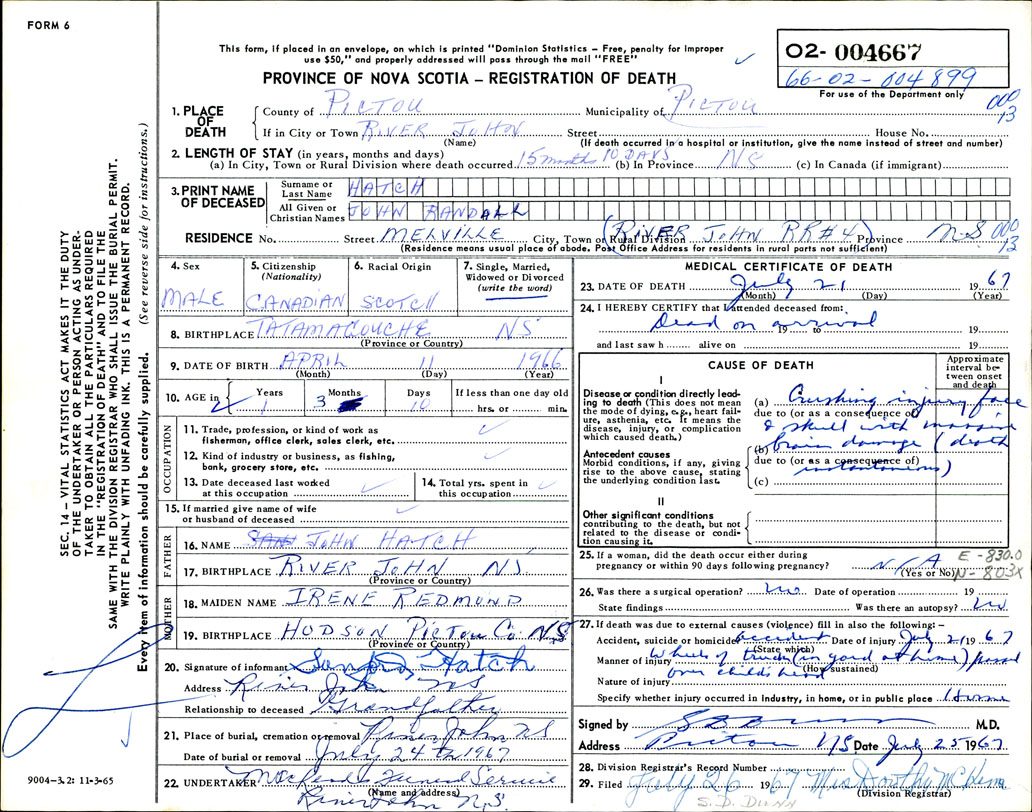 FORM 6
This form, if placed in an envelope, on which is printed "Dominion Statistics – Free, penalty for improper
use $50," and properly addressed will pass through the mail "FREE"
PROVINCE OF NOVA SCOTIA – REGISTRATION OF DEATH
02- 004667
66-02-004899
For use of the Department only
000
13
1. PLACE OF DEATH
County of PICTOU Municipality of PICTOU
If in City or Town RIVER JOHN Street House No.
(Name) (If death occurred in a hospital or institution, give the name instead of street and number)
2. LENGTH OF STAY (in years, months and days)
(a) In City, Town or Rural Division where death occurred 15 months 10 DAYS (b) In Province NS (c) In Canada (if immigrant)
3. PRINT NAME OF DECEASED
Surname or Last Name HATCH
All Given or Christian Names JOHN RANDALL
RESIDENCE No. Street MELVILLE City, Town or Rural Division (RIVER JOHN RR#4) Province N-S 000
13
(Residence means usual place of abode. Post Office Address for residents in rural parts not sufficient)
4. Sex
MALE
5. Citizenship
(Nationality)
CANADIAN
6. Racial Origin
SCOTCH
7. Single, Married, Widowed or Divorced
(write the word)
8. BIRTHPLACE TATAMAGOUCHE NS
(Province or Country)
9. DATE OF BIRTH APRIL 11 1966
(Month) (Day) (Year)
10. AGE in Years Months Days If less than one day old
1 3 10 hrs. or min.
OCCUPATION
11. Trade, profession, or kind of work as
fisherman, office clerk, sales clerk, etc.
12. Kind of industry or business, as fishing,
bank, grocery store, etc.
13. Date deceased last worked
at this occupation
14. Total yrs. spent in
this occupation
15. If married give name of wife
or husband of deceased
FATHER
16. NAME JOHN HATCH
17. BIRTHPLACE RIVER JOHN NS
(Province or Country)
MOTHER
18. MAIDEN NAME IRENE REDMOND
19. BIRTHPLACE HODSON PICTOU Co. N.S
(Province or Country)
20. Signature of informant Sanford Hatch
Address River John NS
Relationship to deceased Grandfather
21. Place of burial, cremation or removal River John NS
Date of burial or removal July 24th 1967
22. UNDERTAKER Funeral Service
(Name and address)
River John N.S.
MEDICAL CERTIFICATE OF DEATH
23. DATE OF DEATH July 21 1967
(Month) (Day) (Year)
24. I HEREBY CERTIFY that I attended deceased from:
Dead on arrival to 19
and last saw h alive on 19
CAUSE OF DEATH
Approximate interval between onset and death
I
Disease or condition directly leading to death (This does not mean
the mode of dying, e.g., heart failure, asthenia, etc. It means the
disease, injury, or complication
which caused death.)
(a) Crushing injury face
due to (or as a consequence of)
& skull with massive
(b) brain damage (death
due to (or as a consequence of)
instantaneous)
(c)
Antecedent causes
Morbid conditions, if any, giving
rise to the above cause, stating
the underlying condition last.
II
Other significant conditions
contributing to the death, but not
related to the disease or condition causing it.
25. If a woman, did the death occur either during
pregnancy or within 90 days following pregnancy? N/A
(Yes or No)
E -830.0
N-803X
26. Was there a surgical operation? no Date of operation 19
State findings Was there an autopsy? no
27. If death was due to external causes (violence) fill in also the following:–
Accident, suicide or homicide accident Date of injury July 21 1967
(State which)
Manner of injury Wheels of truck (in yard at home) passed
(How sustained)
over childs head
Nature of injury
Specify whether injury occurred in industry, in home, or in public place Home
Signed by M.D.
Address Pictou NS Date July 25 1967
28. Division Registrar's Record Number
29. Filed July 26 1967 Miss Dorothy
(Division Registrar)
S.D. DUNN
SEC. 14 – VITAL STATISTICS ACT MAKES IT THE DUTY
OF THE UNDERTAKER OR PERSON ACTING AS UNDER-
TAKER TO OBTAIN ALL THE PARTICULARS REQUIRED
IN THE "REGISTRATION OF DEATH" AND TO FILE THE
SAME WITH THE DIVISION REGISTRAR WHO SHALL ISSUE THE BURIAL PERMIT.
WRITE PLAINLY WITH UNFADING INK. THIS IS A PERMANENT RECORD.
Every item of information should be carefully supplied. (See reverse side for instructions.)
9004-3.2: 11-3-65